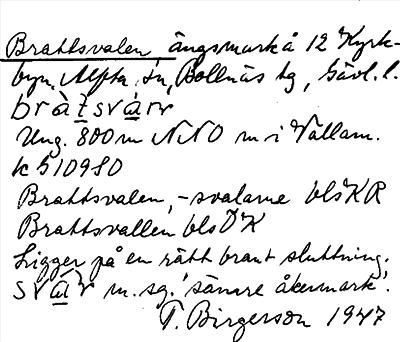 Brattsvalen, ängsmark å 12 Kyrk-
byn, Alfta sn, Bollnäs tg, Gävl. l.
bràtsvárv
Ung. 800 m NNO m i Vallam.
k 510980
Brattsvalen, -svalarne blsKR
Brattsvallen blsÖK
Ligger på en rätt brant sluttning.
m. sg. 'sämre åkermark'.
T. Birgerson 1947